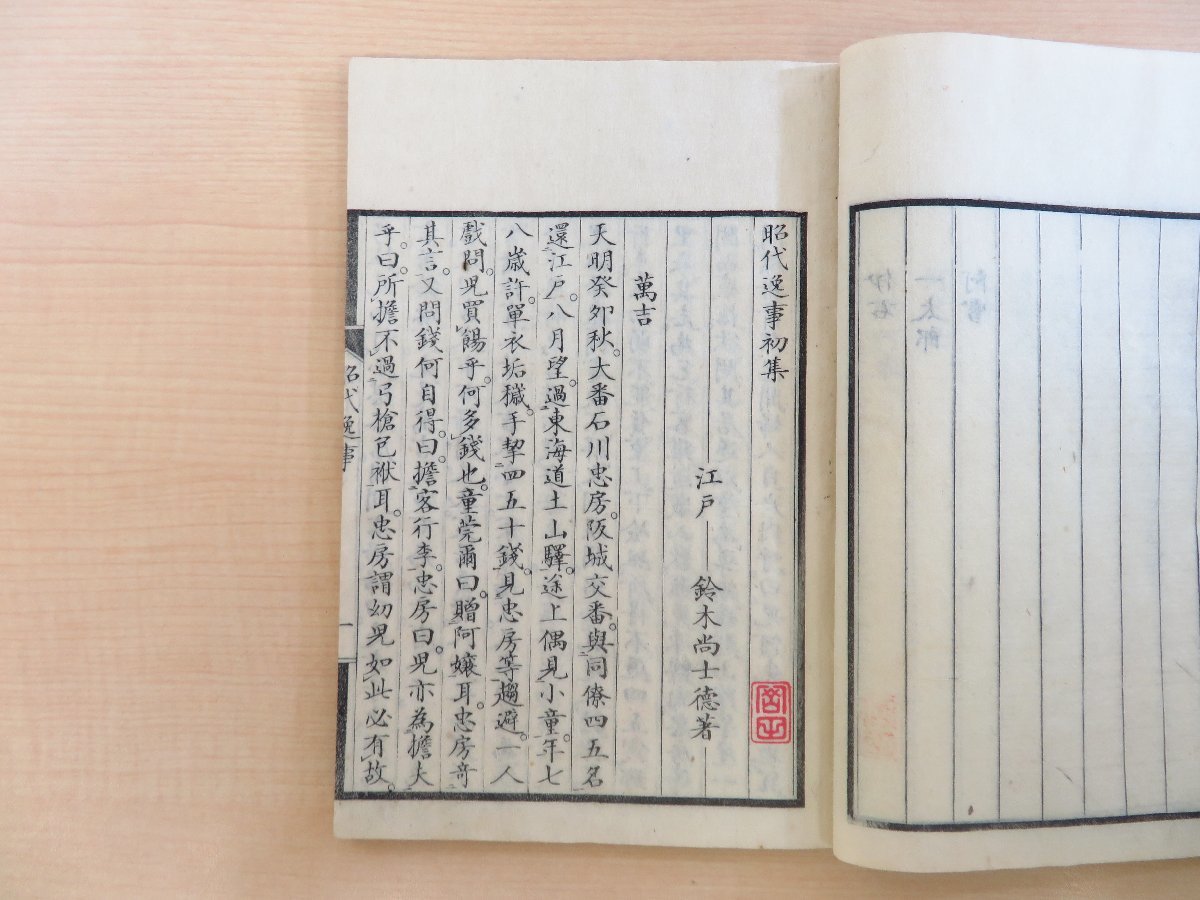 昭代逸事初集
江戶 鈴木尚士德著
萬吉
天明癸卯秋。大番石川忠房。阪城交番。與同僚四五名
還江戶。八月望。過東海道土山驛。途上偶見小童。年七
八歲許。單衣垢穢。手挈四五十錢。見忠房等趨避。一人
戲問。兒買餳乎。何多錢也。童莞爾曰。贈阿孃耳。忠房奇
其言。又問錢何自得。曰。擔客行李。忠房曰。兒亦為擔夫
乎。曰。所擔不過弓槍包袱耳。忠房謂幼兒如此必有故。
昭代逸事
一
一太郎